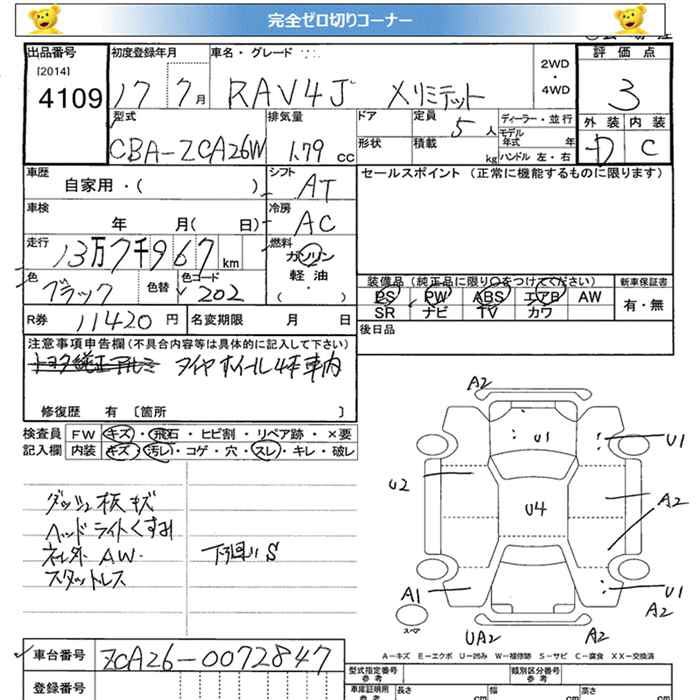 完全ゼロ切りコーナー
出品番号 [2014] 4109
初度登録年月 17 7月
車名・グレード RAV4 J Xリミテッド
2WD・4WD
評価点 3
外装 内装
D C
型式 CBA-ZCA26W
排気量 1.79 cc
ドア 定員 5人
ディーラー・並行
形状 積載 kg
モデル年式 年
ハンドル 左・右
車歴 自家用・( )
シフト AT
セールスポイント (正常に機能するものに限ります)
車検 年 月( 日)
冷房 AC
走行 13万7千967 km
燃料 ガソリン 軽油 ( ・ )
色 ブラック 色替 色コード 202
装備品 (純正品に限り○をつけてください) 新車保証書
PS PW ABS エアB AW 有・無
SR ナビ TV カワ
R券 11420 円 名変期限 月 日
後日品
注意事項申告欄(不具合内容等は具体的に記入して下さい)
トヨタ純正アルミ タイヤホイール4本車内
修復歴 有 〔箇所 〕
検査員記入欄
FW キズ・飛石・ヒビ割・リペア跡・×要
内装 キズ・汚レ・コゲ・穴・スレ・キレ・破レ
ダッシュ板キズ
ヘッドライトくすみ
ネレ外 AW.
スタットレス
下回り S
A2
U1
U1
U2
U4
A2
A1
U1
A2
スペア
UA2
A2
A-キズ E-エクボ U-凹み W-補修跡 S-サビ C-腐食 XX-交換済
車台番号 ZCA26-0072847
登録番号
型式指定番号 参考
類別区分番号 参考
車庫証明用 参考 長さ cm 幅 cm 高さ cm